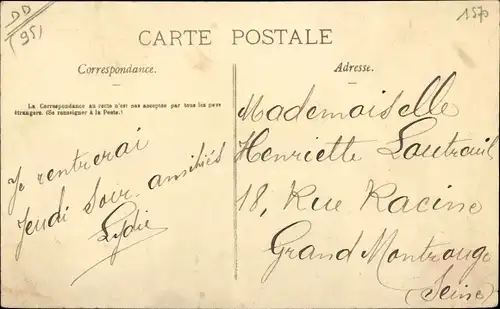 DD
(95)
1570
CARTE POSTALE
Correspondance.
La Correspondance au recto n'est pas acceptée par tous les pays
étrangers. (Se renseigner à la Poste.)
Je rentrerai
Jeudi Soir. amitiés
Lydie
Adresse.
Mademoiselle
Henriette Loutreuil
18, Rue Racine
Grand Montrouge
(Seine)